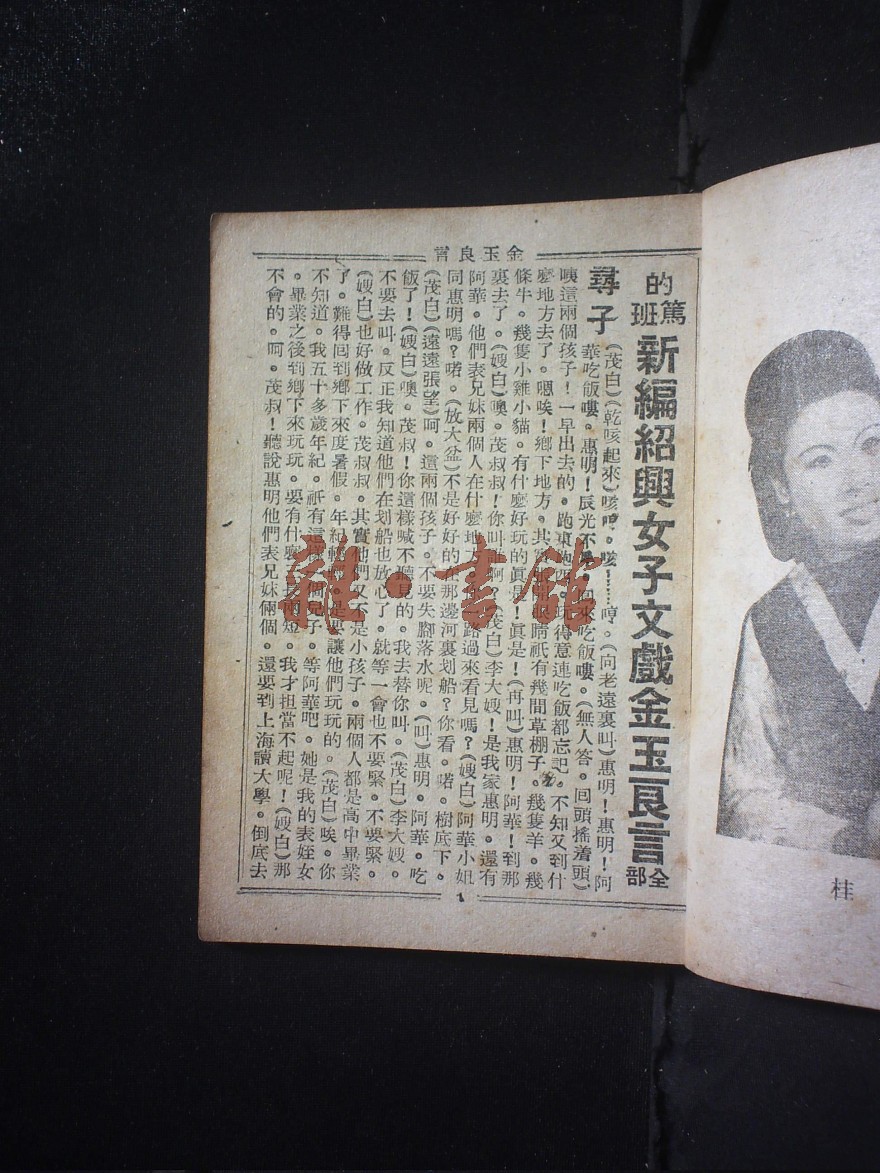 金玉良言
的篤班
新編紹興女子文戲金玉良言
全部
尋子
(茂白)(乾咳起來)咳哼。咳!……哼。(向老遠裏叫)惠明!惠明!阿
華吃飯嘍。惠明!辰光不 回來吃飯嘍。(無人答。回頭搖着頭)
咦這兩個孩子!一早出去的。跑東跑西。玩得意連吃飯都忘記。不知又到什
麼地方去了。嗯唉!鄉下地方。其實 眼睛祇有幾間草棚子。幾隻羊。幾
條牛。幾隻小雞小貓。有什麼好玩的眞是!眞是!(再叫)惠明!阿華!到那
裏去了。(嫂白)噢。茂叔叔!你叫誰啊?(茂白)李大嫂!是我家惠明。還有
阿華。他們表兄妹兩個人在什麼地方 路過來看見嗎?(嫂白)阿華小姐
同惠明嗎?喏。(放大盆)不是好好的在那邊河裏划船?你看。喏。樹底下。
(茂白)(遠遠張望)呵。這兩個孩子。不要失腳落水呢。(叫)惠明。阿華。吃
飯了!(嫂白)噢。茂叔!你這樣喊不聽見的。我去替你叫。(茂白)李大嫂。
不要去叫。反正我知道他們在划船也放心了。就等一會也不要緊。不要緊。
(嫂白)也好做工作。茂叔叔。其實他們又不是小孩子。兩個人都是高中畢業
了。難得回到鄉下來度暑假。年紀輕 是要讓他們玩玩的。(茂白)唉。你
不知道。我五十多歲年紀。祇有這樣一個兒子。等阿華吧。她是我的表姪女
。畢業之後到鄉下來玩玩。要有什麼 長兩短。我才担當不起呢!(嫂白)那
不會的。呵。茂叔!聽說惠明他們表兄妹倆個。還要到上海讀大學。倒底去
1
桂
雜·書館